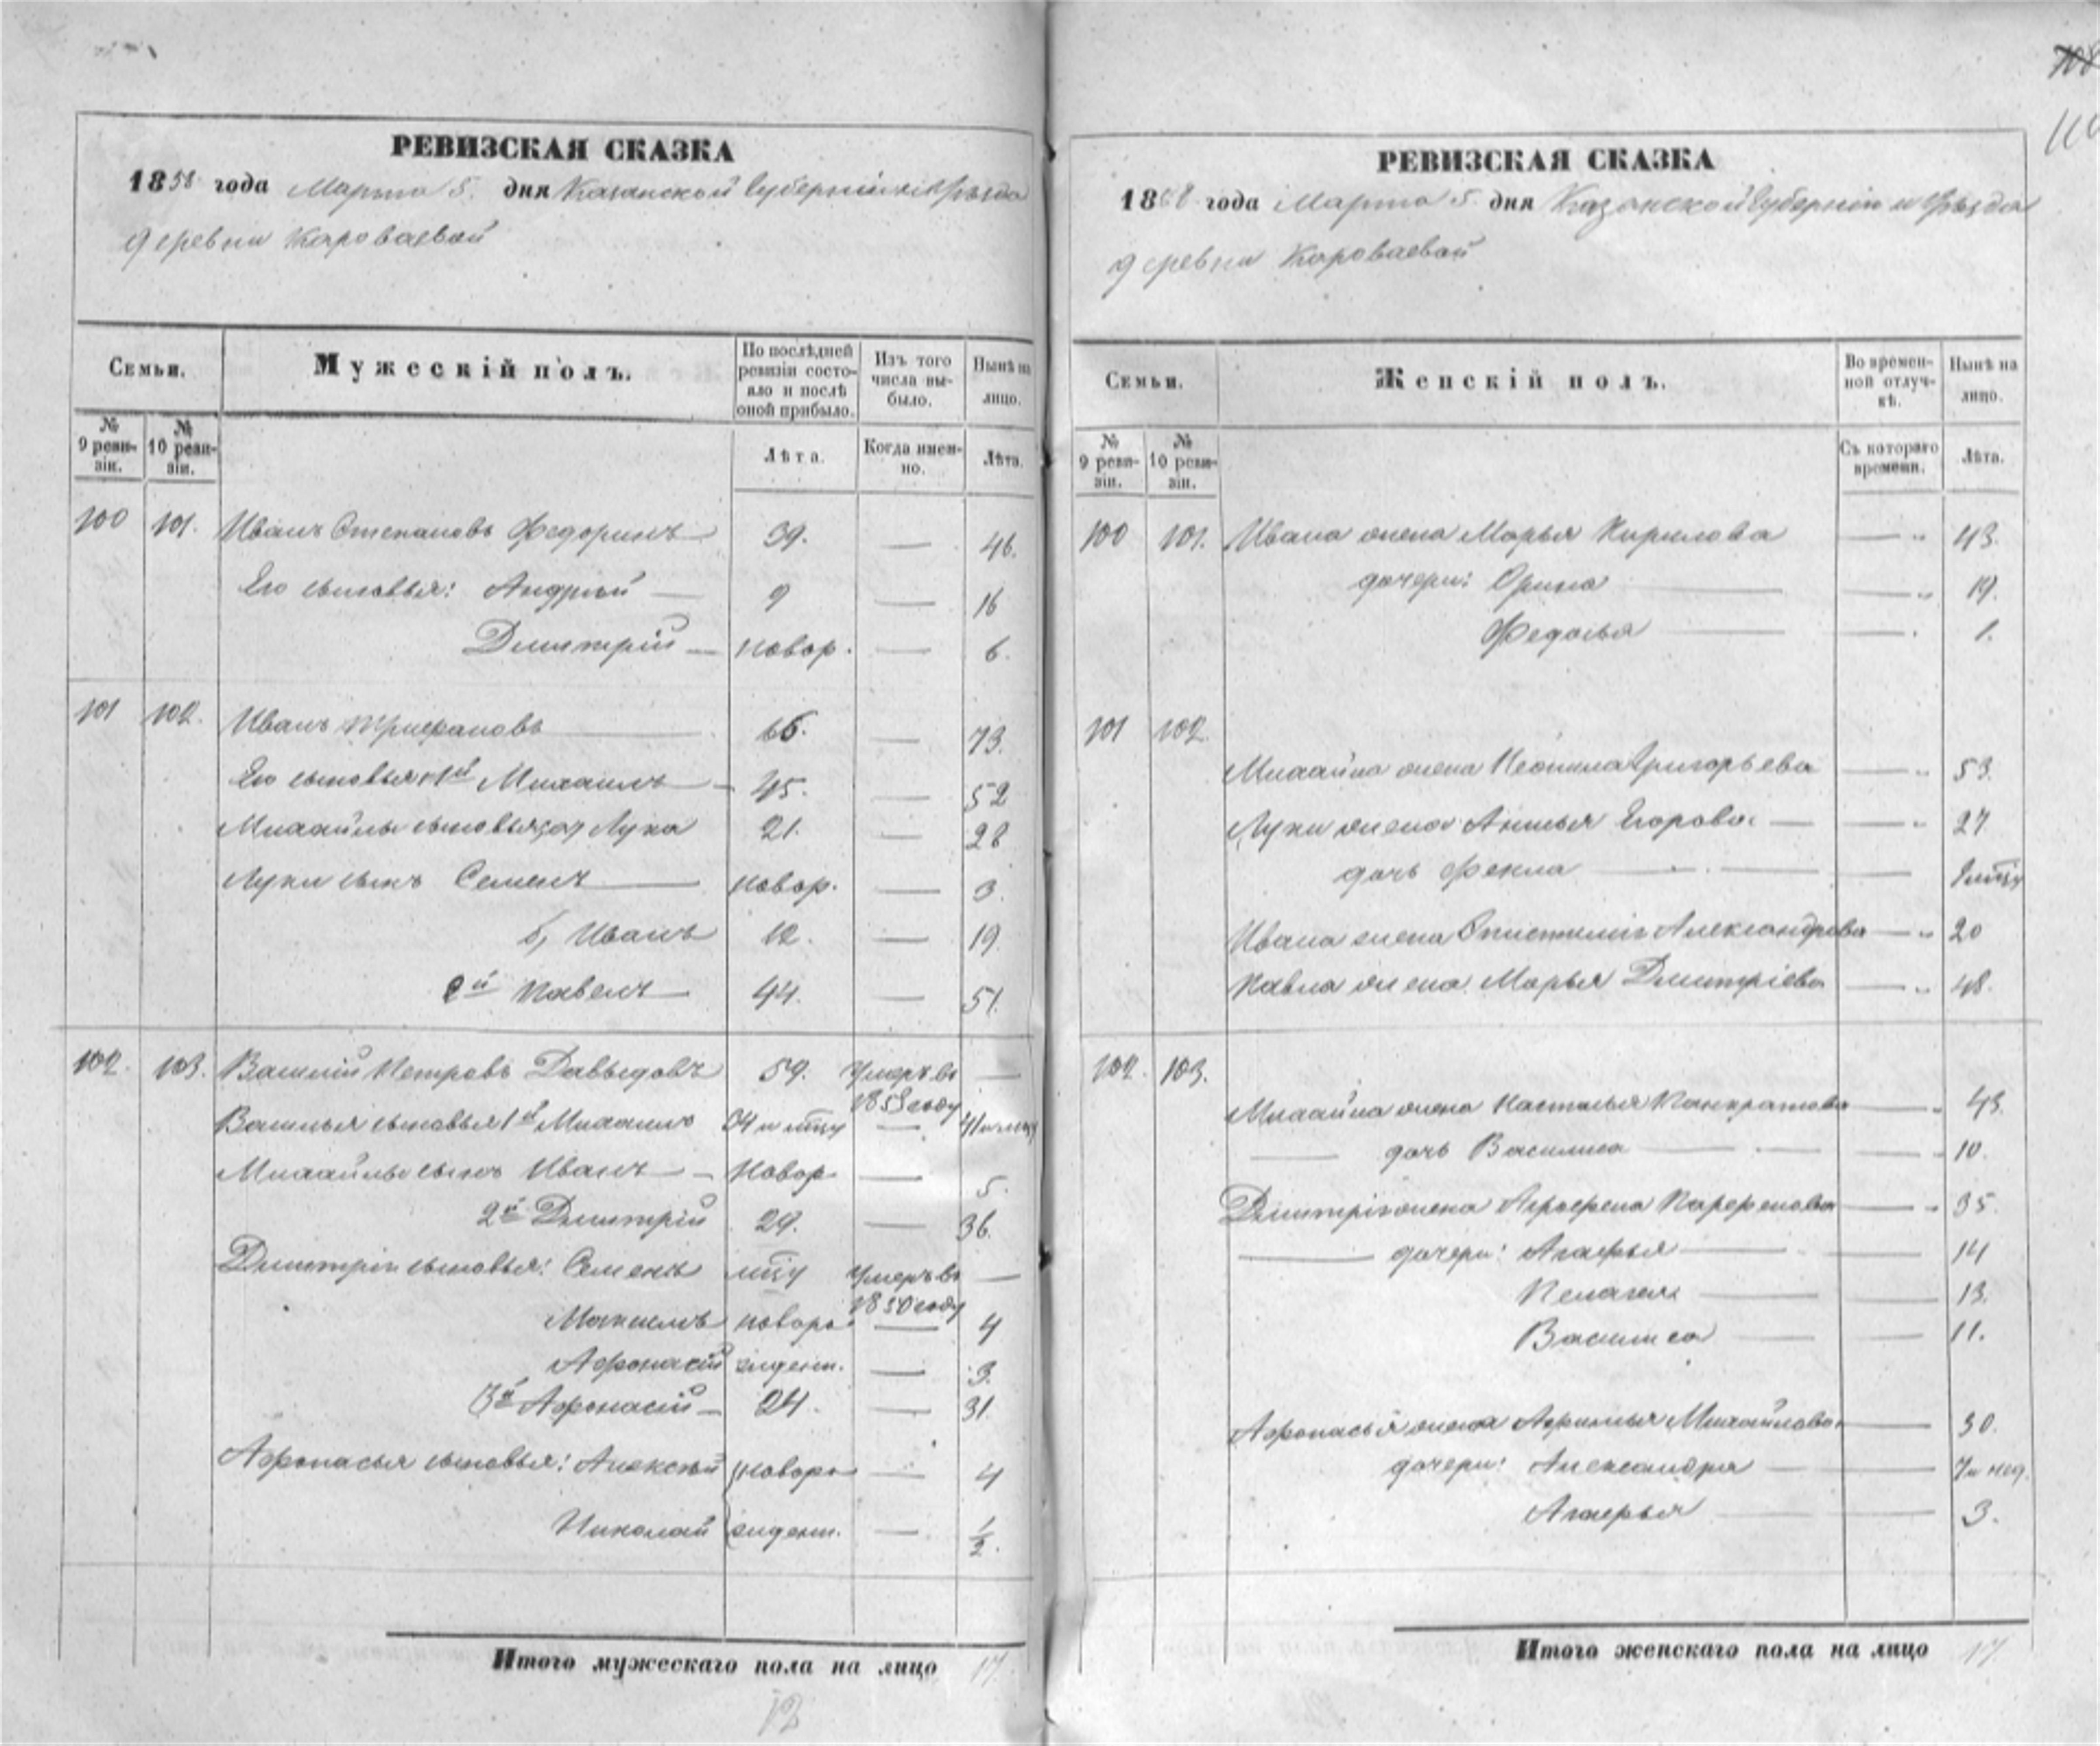 РЕВИЗСКАЯ СКАЗКА
1858 года Марта 5. дня Казанской Губернiи и Уѣзда
деревни Кароваевой
Семьи.
Мужескiй полъ.
По послѣдней ревизiи состояло и послѣ оной прибыло.
Изъ того числа выбыло.
Нынѣ на лицо.
№ 9 ревизiи.
№ 10 ревизiи.
Лѣта.
Когда именно.
Лѣта.
100 101. Иванъ Степановъ Федоринъ 39. — 46.
Его сыновья: Андрей — 9 — 16
Дмитрiй — новор. — 6.
101 102. Иванъ Трифановъ — 66. — 73.
Его сыновья 1й Михаилъ — 45. — 52
Михайлы сыновья а, Лука 21. — 28
Луки сынъ Семенъ — новор. — 3.
б, Иванъ 12. — 19.
2й Павелъ — 44. — 51.
102. 103. Василiй Петровъ Давыдовъ 59. Умеръ въ 1858 году —
Василья сыновья 1й Михаилъ 34 — 41
Михайлы сынъ Иванъ — Новор — 5.
2й Дмитрiй 29. — 36.
Дмитрiя сыновья: Семенъ Умеръ въ 1850 году —
Максимъ новоро — 4
Афонасiй жденн. — 3.
3й Афонасiй — 24. — 31.
Афонасья сыновья: Алексѣй новоро — 4
Николай жденн. — 1/2.
Итого мужескаго пола на лицо 17.
12
РЕВИЗСКАЯ СКАЗКА
1858 года Марта 5. дня Казанской Губернiи и Уѣзда
деревни Кароваевой
Семьи.
Женскiй полъ.
Во временной отлучкѣ.
Нынѣ на лицо.
№ 9 ревизiи.
№ 10 ревизiи.
Съ котораго времени.
Лѣта.
100 101. Ивана жена Марья Кирилова — 43.
дочери: Орина — 19.
Федосья — 1.
101 102.
Михайла жена Неонила Григорьева — 53.
Луки жена Анисья Егорова — 27
дочь Фекла —
Ивана жена Александрова — 20
Павла жена Марья Дмитрiева — 48.
102. 103.
Михайла жена Настасья Панкратова — 43.
— дочь Василиса — 10.
Дмитрiя жена Аграфена Парфенова — 35.
— дочери: Агафья — 14
Пелагея — 13.
Василиса — 11.
Афонасья жена Афимья Михайлова — 30.
дочери: Александра — 7и нед.
Агафья — 3.
Итого женскаго пола на лицо 17